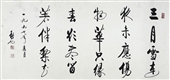 三月雪連
夜未應傷
物華只緣
春欲盡留
著伴梨花